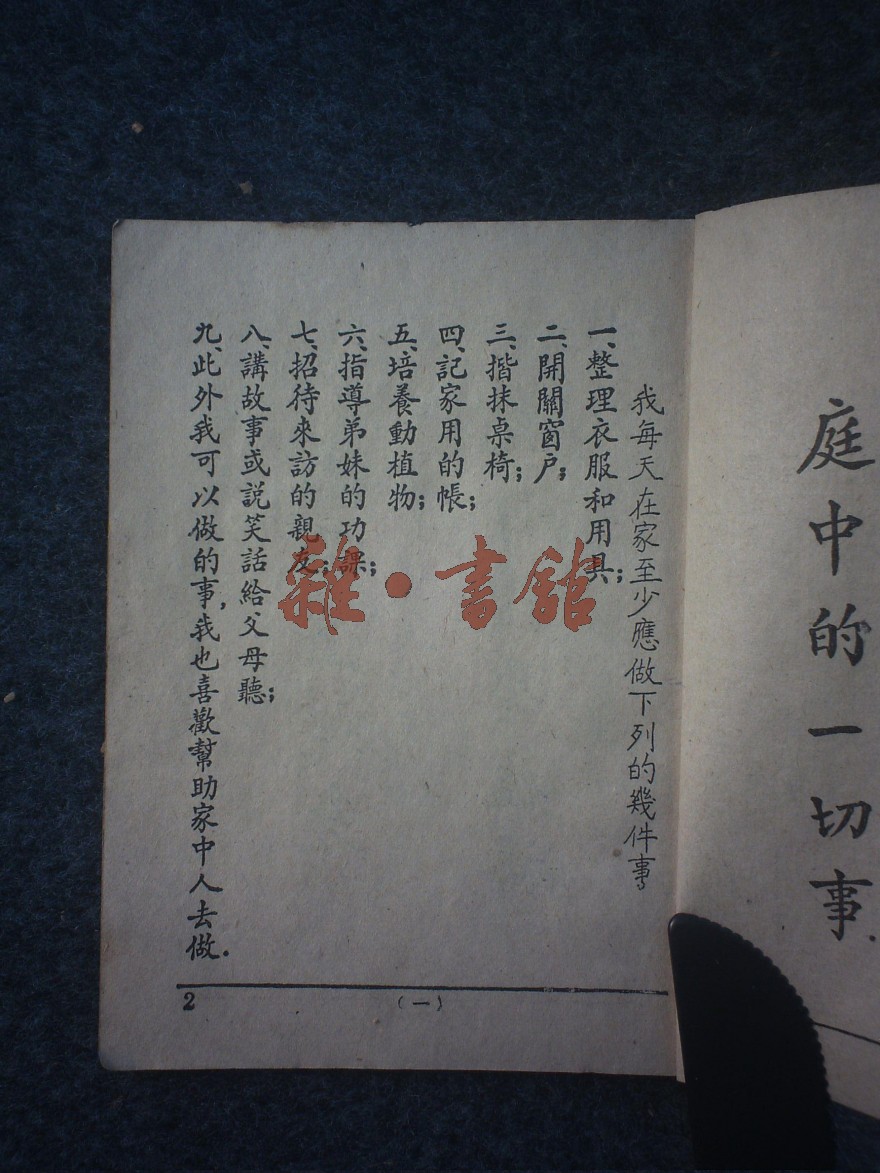 庭中的一切事.
我每天在家至少應做下列的幾件事
一、整理衣服和用具;
二、開關窗户;
三、揩抹桌椅;
四、記家用的帳;
五、培養動植物;
六、指導弟妹的功課;
七、招待來訪的親友;
八、講故事或説笑話給父母聽;
九、此外我可以做的事,我也喜歡幫助家中人去做.
2
(一)
雜·書館